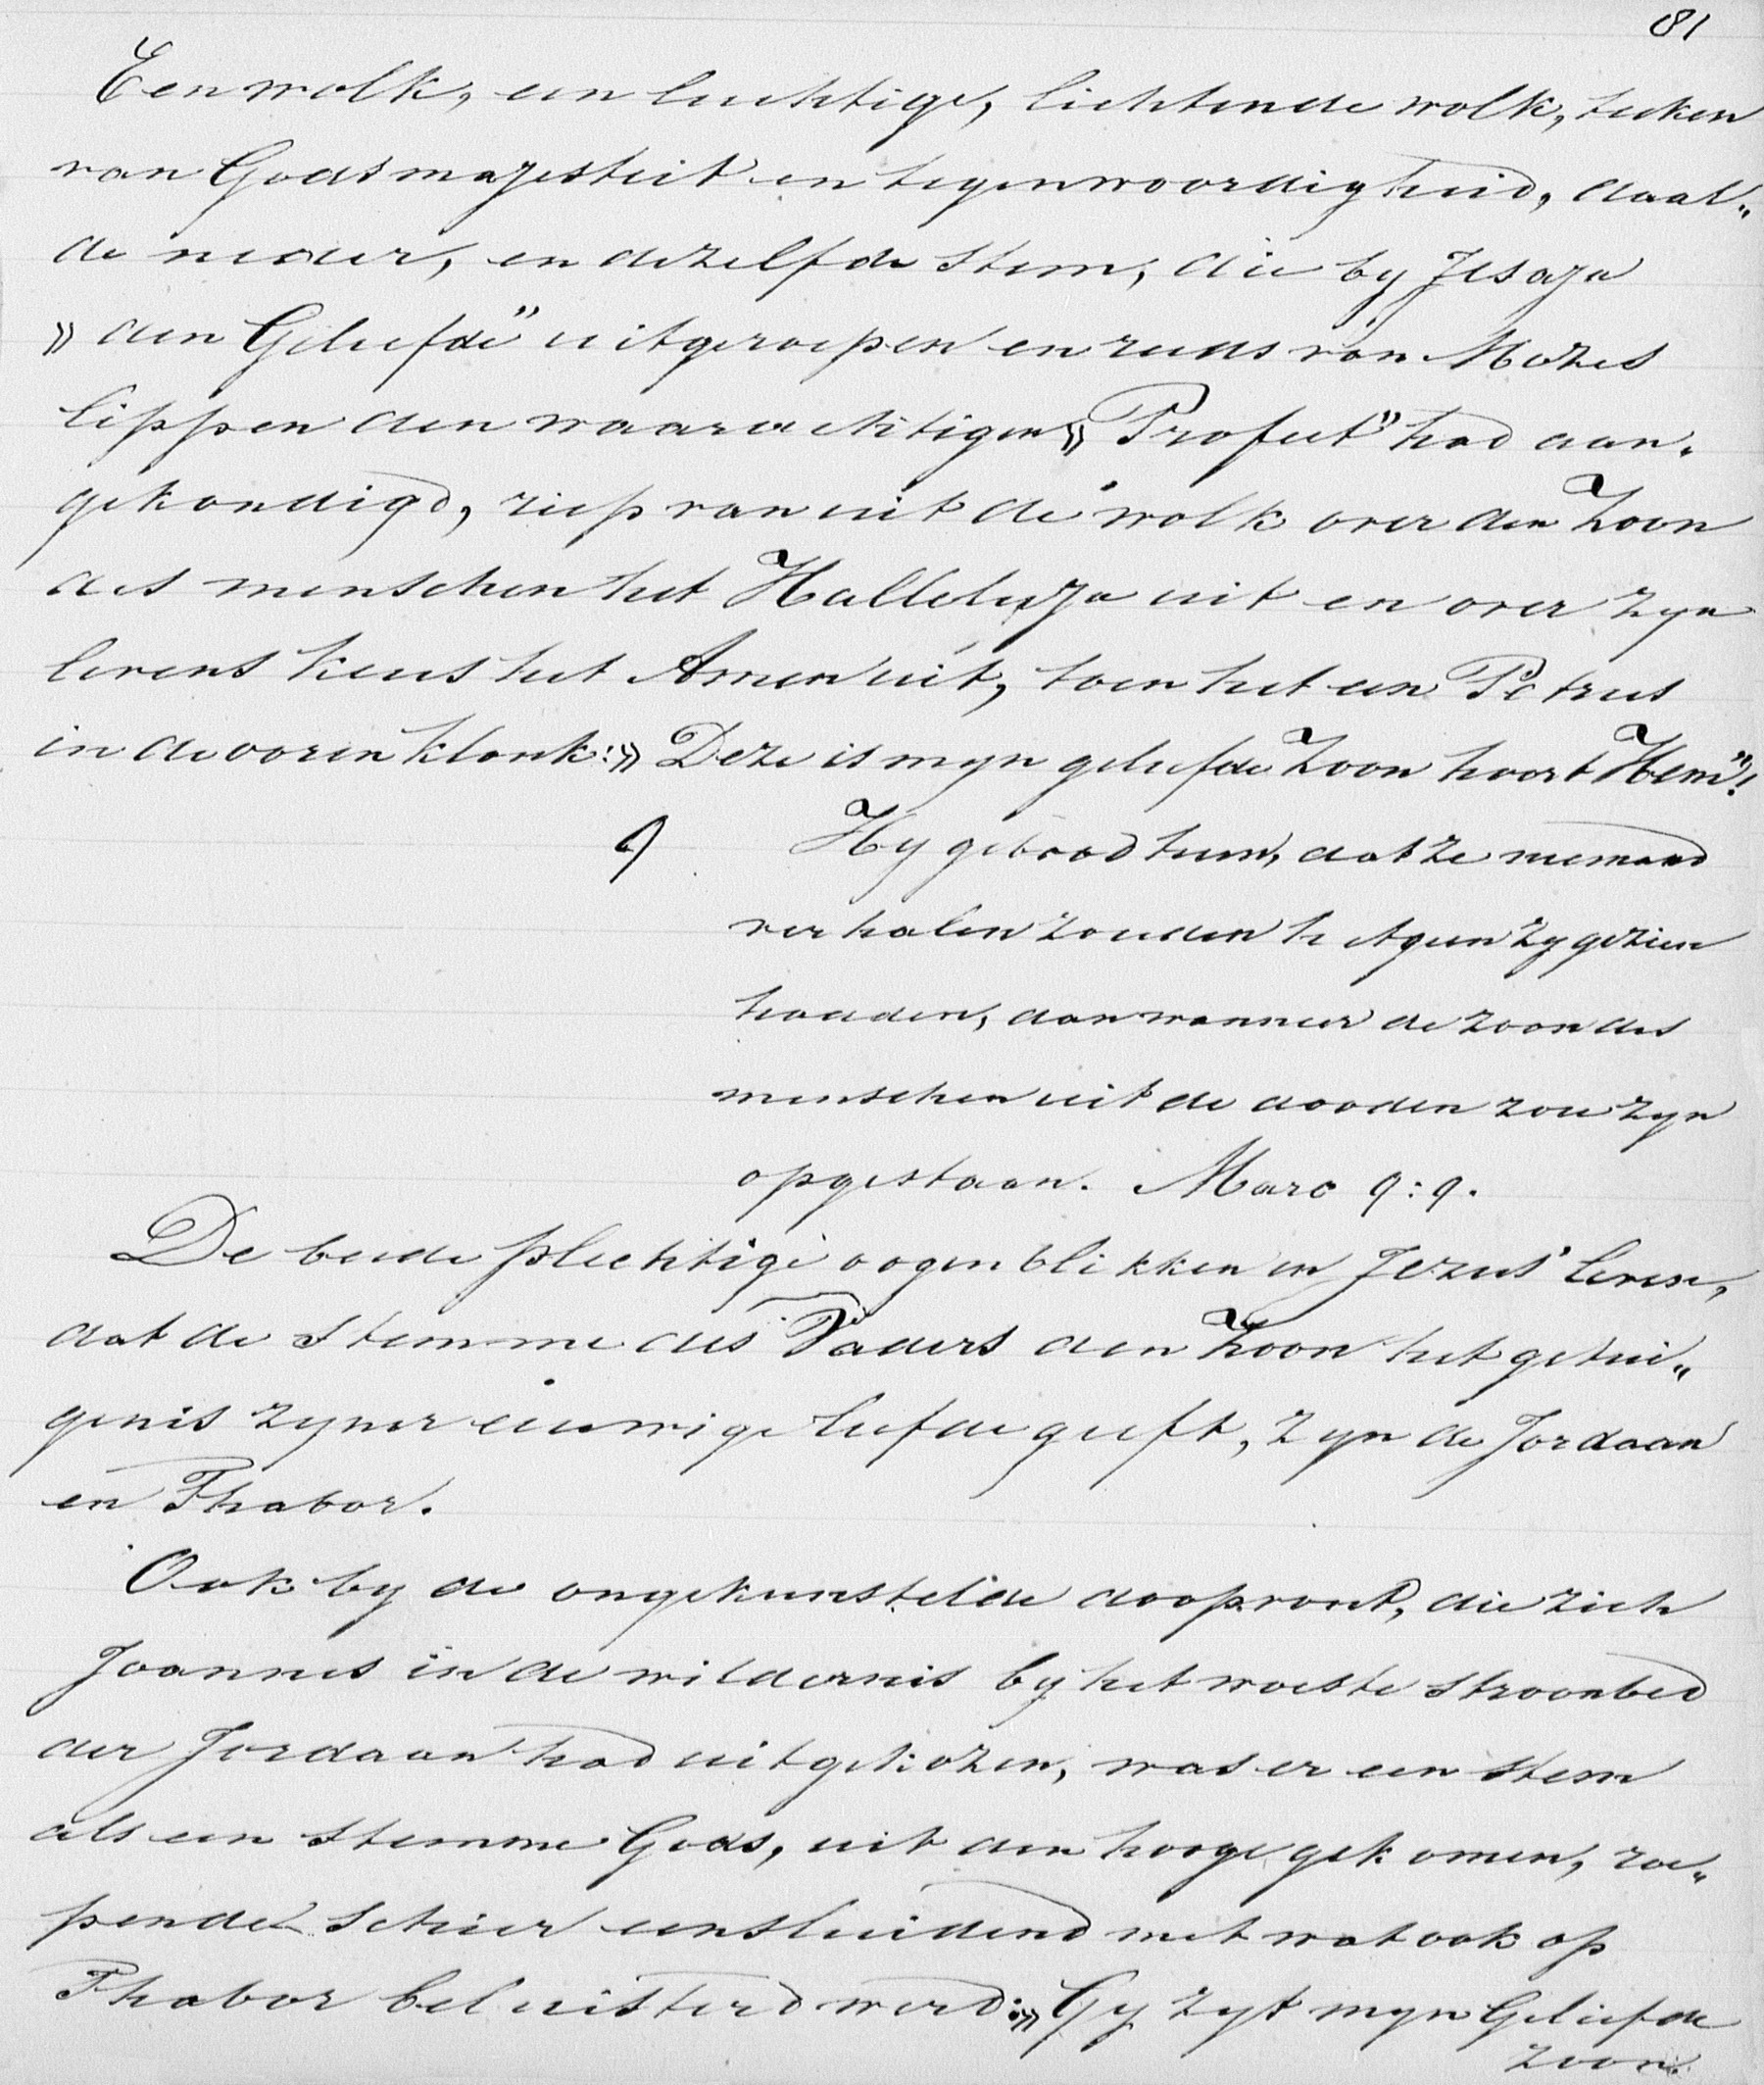 81
Een wolk, een luchtige, lichtende wolk, teeken
van Gods majesteit en tegenwoordigheid, daal„
de neder, en dezelfde stem, die by Jesaja
» den Geliefde" uitgeroepen en reeds van Mozes
lippen den waarachtigen » Profeet" had aan„
gekondigd, riep van uit de wolk over den Zoon
des menschen het Halleluja uit en over zyn
levens keus het Amen uit, toen het een Petrus
in de ooren klonk: » Deze is myn geliefde Zoon hoort Hem"!
9 Hy gebood hun, dat ze niemand
verhalen zouden hetgeen zy gezien
hadden, dan wanneer de zoon des
menschen uit de dooden zou zyn
opgestaan. Marc 9:9.
De beide plechtige oogenblikken in Jezus' leven,
dat de Stemme des Vaders den Zoon het getui„
genis zyner eeuwige liefde geeft, zyn de Jordaan
en Thabor.
Ook by de ongekunstelde doopvont, die zich
Joannes in de wildernis by het woeste stroombed
der Jordaan had uitgekozen, was er een stem
als een Stemme Gods, uit den hooge gekomen, roe„
pende schier eensluidend met wat ook op
Thabor beluisterd werd: » Gy zyt myn Geliefde
zoon.